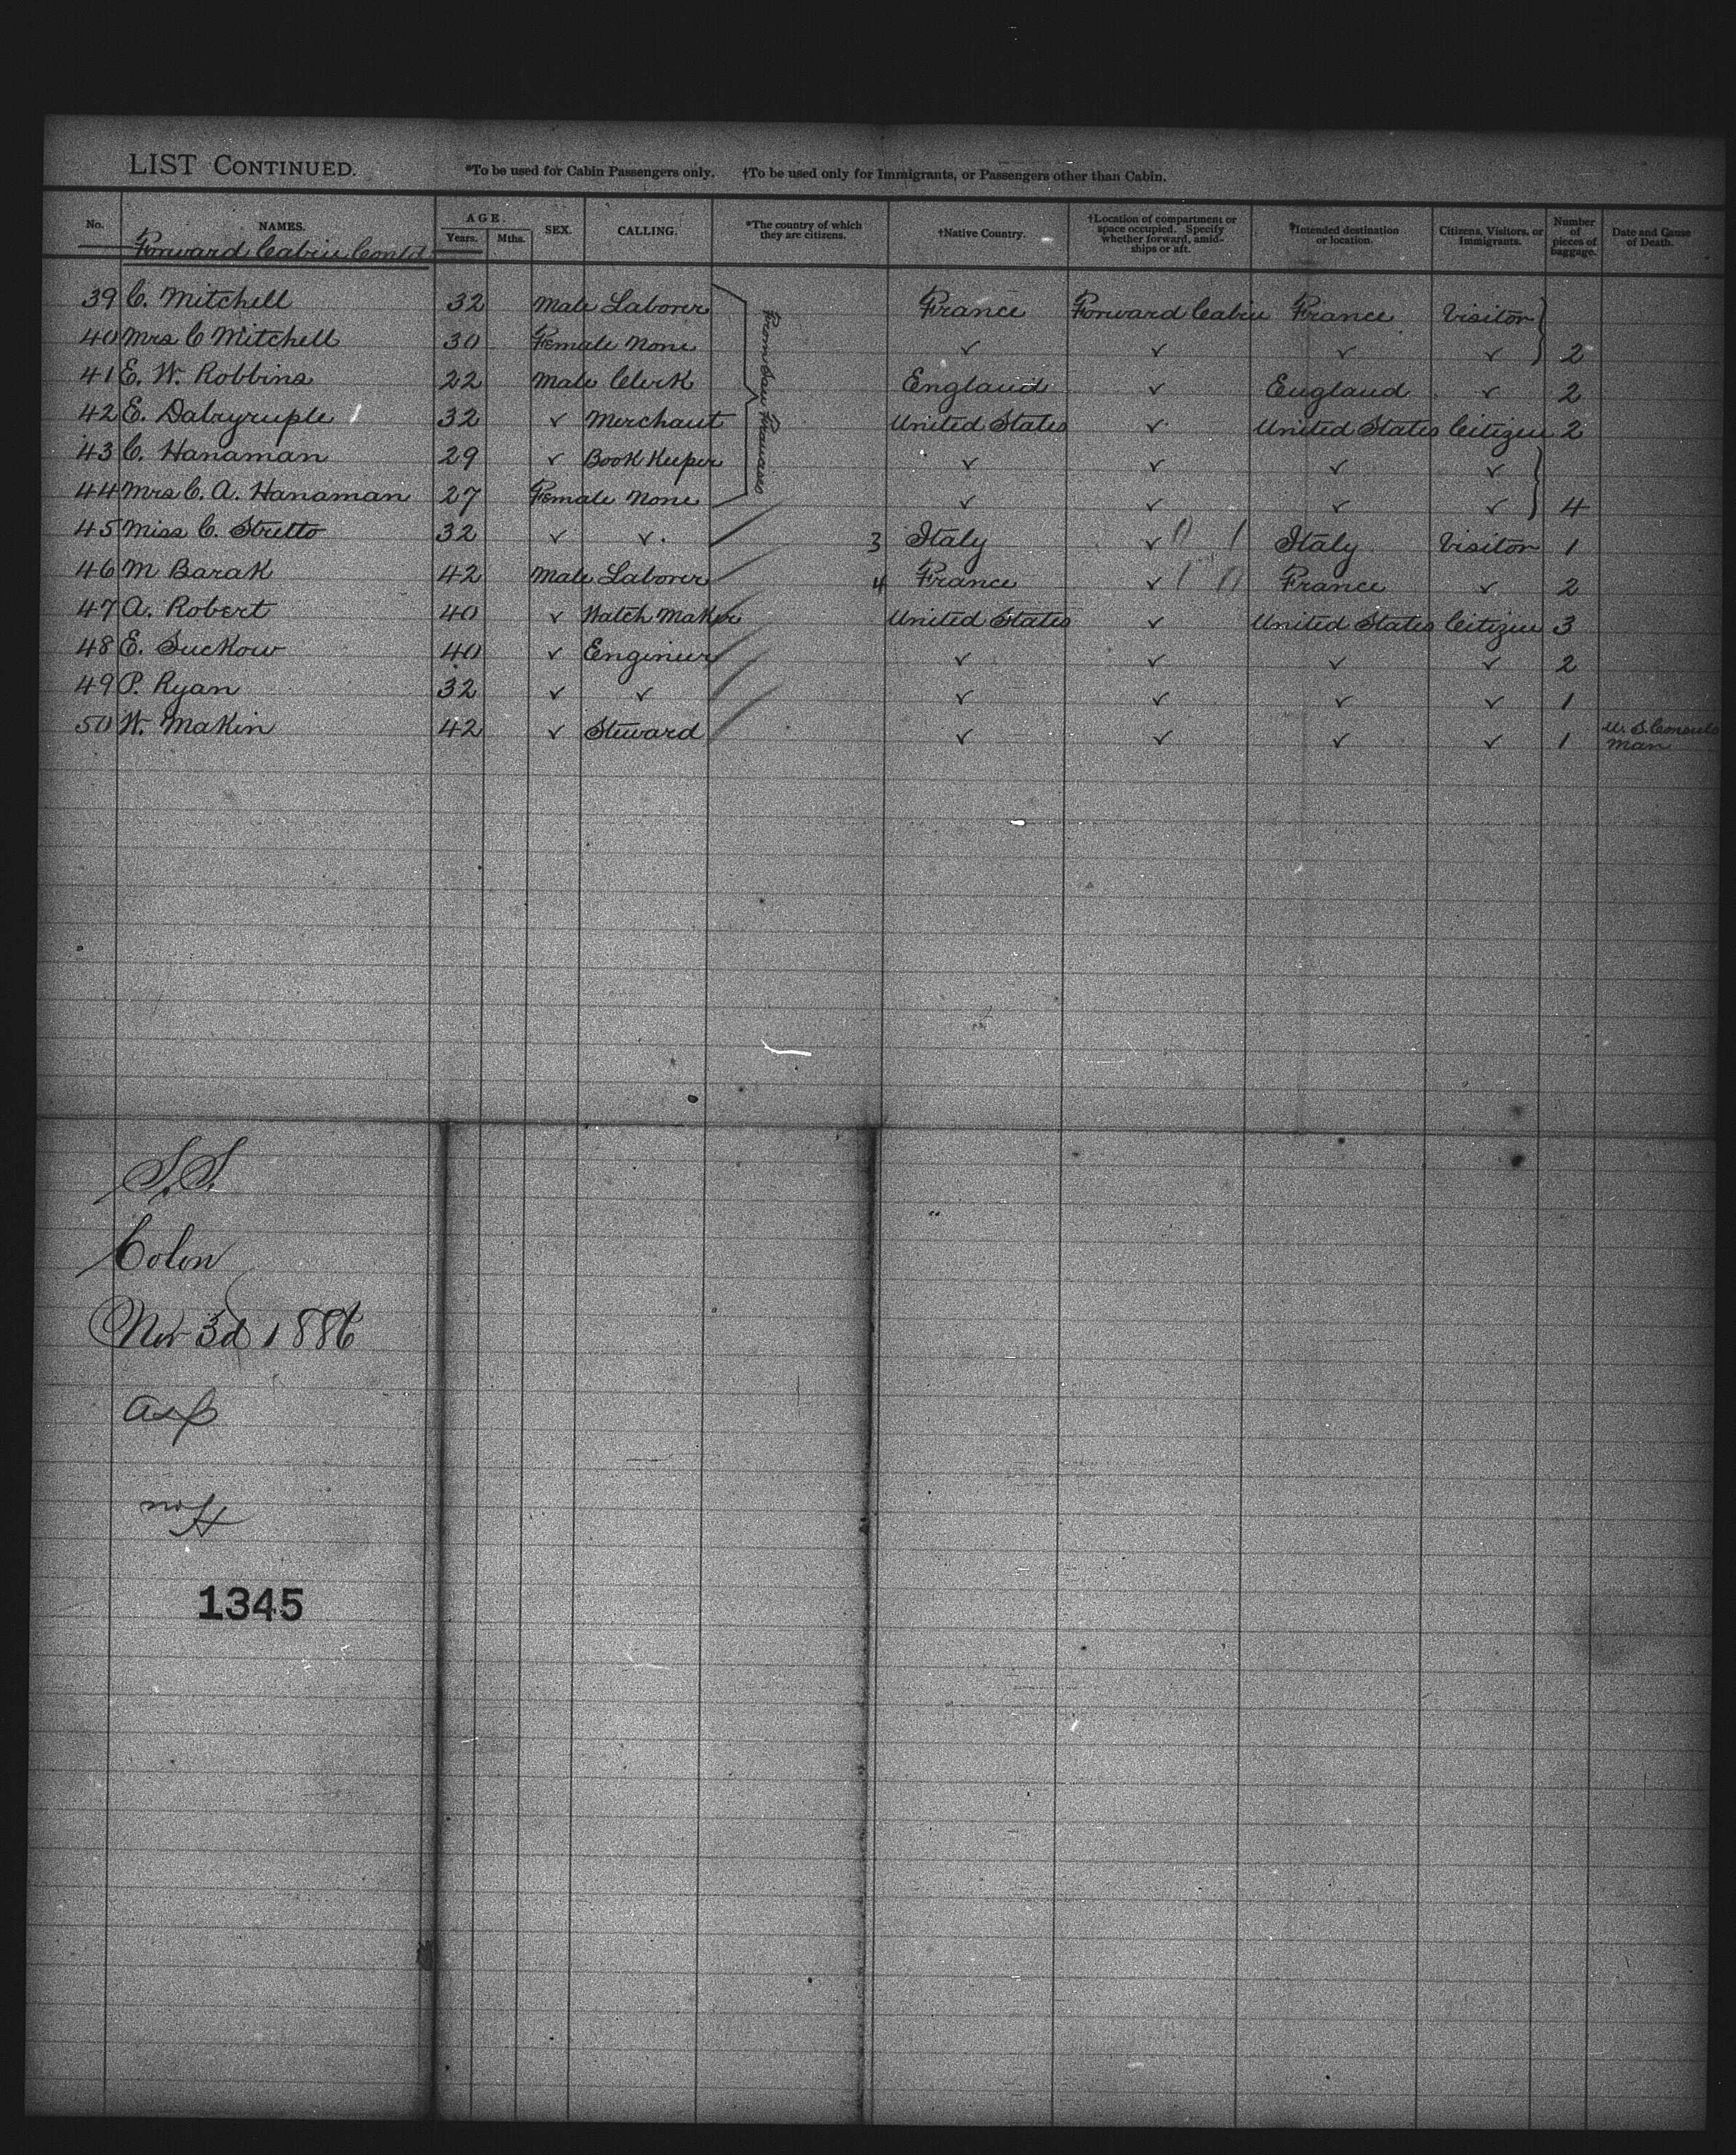 LIST CONTINUED. *To be used for Cabin Passengers only. †To be used only for Immigrants, or Passengers other than Cabin.
No. NAMES. AGE. Years. Mths. SEX. CALLING. *The country of which they are citizens. †Native Country. †Location of compartment or space occupied. Specify whether forward, amidships or aft. †Intended destination or location. Citizens, Visitors, or Immigrants. Number of pieces of baggage. Date and Cause of Death.
Forward Cabin Contd
39 C. Mitchell 32 Male Laborer France Forward Cabin France Visitor
40 Mrs C Mitchell 30 Female None ✓ ✓ ✓ ✓ 2
41 E. W. Robbins 22 Male Clerk England ✓ England ✓ 2
42 E. Dalryruple 32 ✓ Merchant United States ✓ United States Citizen 2
43 C. Hanaman 29 ✓ Book Keeper ✓ ✓ ✓ ✓
44 Mrs C. A. Hanaman 27 Female None ✓ ✓ ✓ ✓ 4
From San Francisco
45 Miss C. Stretto 32 ✓ ✓ 3 Italy ✓ 0 1 Italy Visitor 1
46 M Barak 42 Male Laborer 4 France ✓ 1 0 France ✓ 2
47 A. Robert 40 ✓ Watch Maker United States ✓ United States Citizen 3
48 E. Suckow 40 ✓ Engineer ✓ ✓ ✓ ✓ 2
49 P. Ryan 32 ✓ ✓ ✓ ✓ ✓ ✓ 1
50 W. Makin 42 ✓ Steward ✓ ✓ ✓ ✓ 1 U. S. Consuls man
S.S.
Colon
Nov 3d 1886
Asp
1345